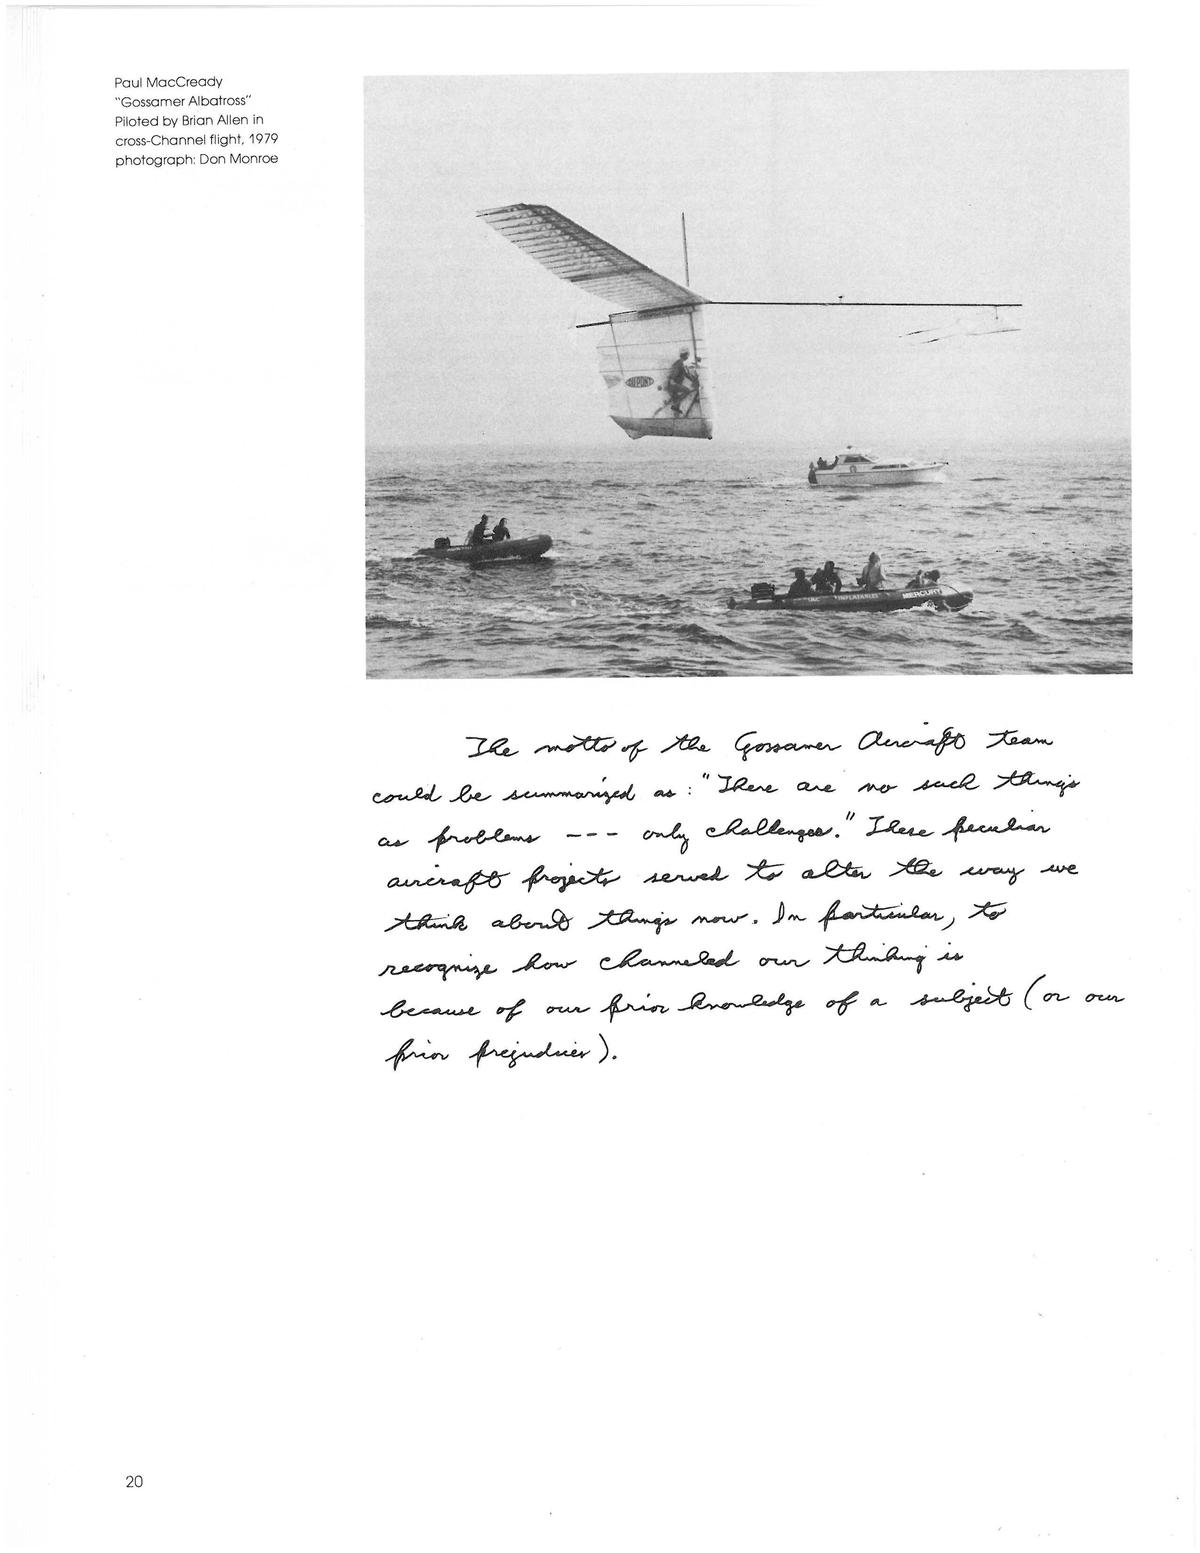 Paul MacCready
"Gossamer Albatross"
Piloted by Brian Allen in
cross-Channel flight, 1979
photograph: Don Monroe
DU PONT
INFLATABLES MERCURY
The motto of the Gossamer Aircraft team
could be summarized as: "There are no such things
as problems --- only challenges." These peculiar
aircraft projects served to alter the way we
think about things now. In particular, to
recognize how channeled our thinking is
because of our prior knowledge of a subject (or our
prior prejudices).
20